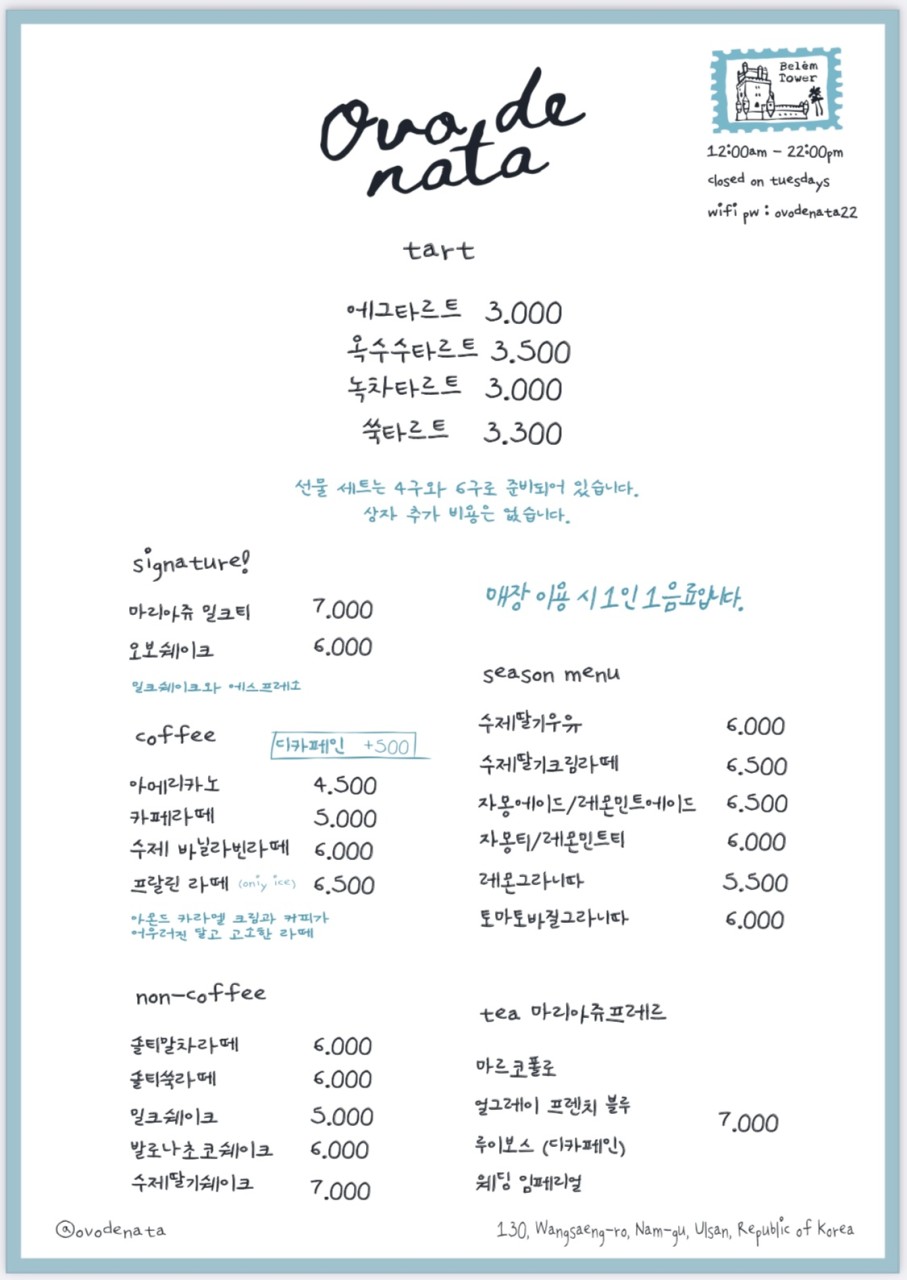 Ovo de
nata
Belèm
Tower
12:00am - 22:00pm
closed on tuesdays
wifi pw : ovodenata22
tart
에그타르트 3.000
옥수수타르트 3.500
녹차타르트 3.000
쑥타르트 3.300
선물 세트는 4구와 6구로 준비되어 있습니다.
상자 추가 비용은 없습니다.
signature!
마리아쥬 밀크티 7.000
오보쉐이크 6.000
밀크쉐이크와 에스프레소
coffee
디카페인 +500
아메리카노 4.500
카페라떼 5.000
수제 바닐라빈라떼 6.000
프랄린 라떼 (only ice) 6.500
아몬드 카라멜 크림과 커피가
어우러진 달고 고소한 라떼
non-coffee
솔티말차라떼 6.000
솔티쑥라떼 6.000
밀크쉐이크 5.000
발로나초코쉐이크 6.000
수제딸기쉐이크 7.000
매장 이용 시 1인 1음료입니다.
season menu
수제딸기우유 6.000
수제딸기크림라떼 6.500
자몽에이드/레몬민트에이드 6.500
자몽티/레몬민트티 6.000
레몬그라니따 5.500
토마토바질그라니따 6.000
tea 마리아쥬프레르
마르코폴로
얼그레이 프렌치 블루
7.000
루이보스 (디카페인)
웨딩 임페리얼
@ovodenata
130, Wangsaeng-ro, Nam-gu, Ulsan, Republic of Korea